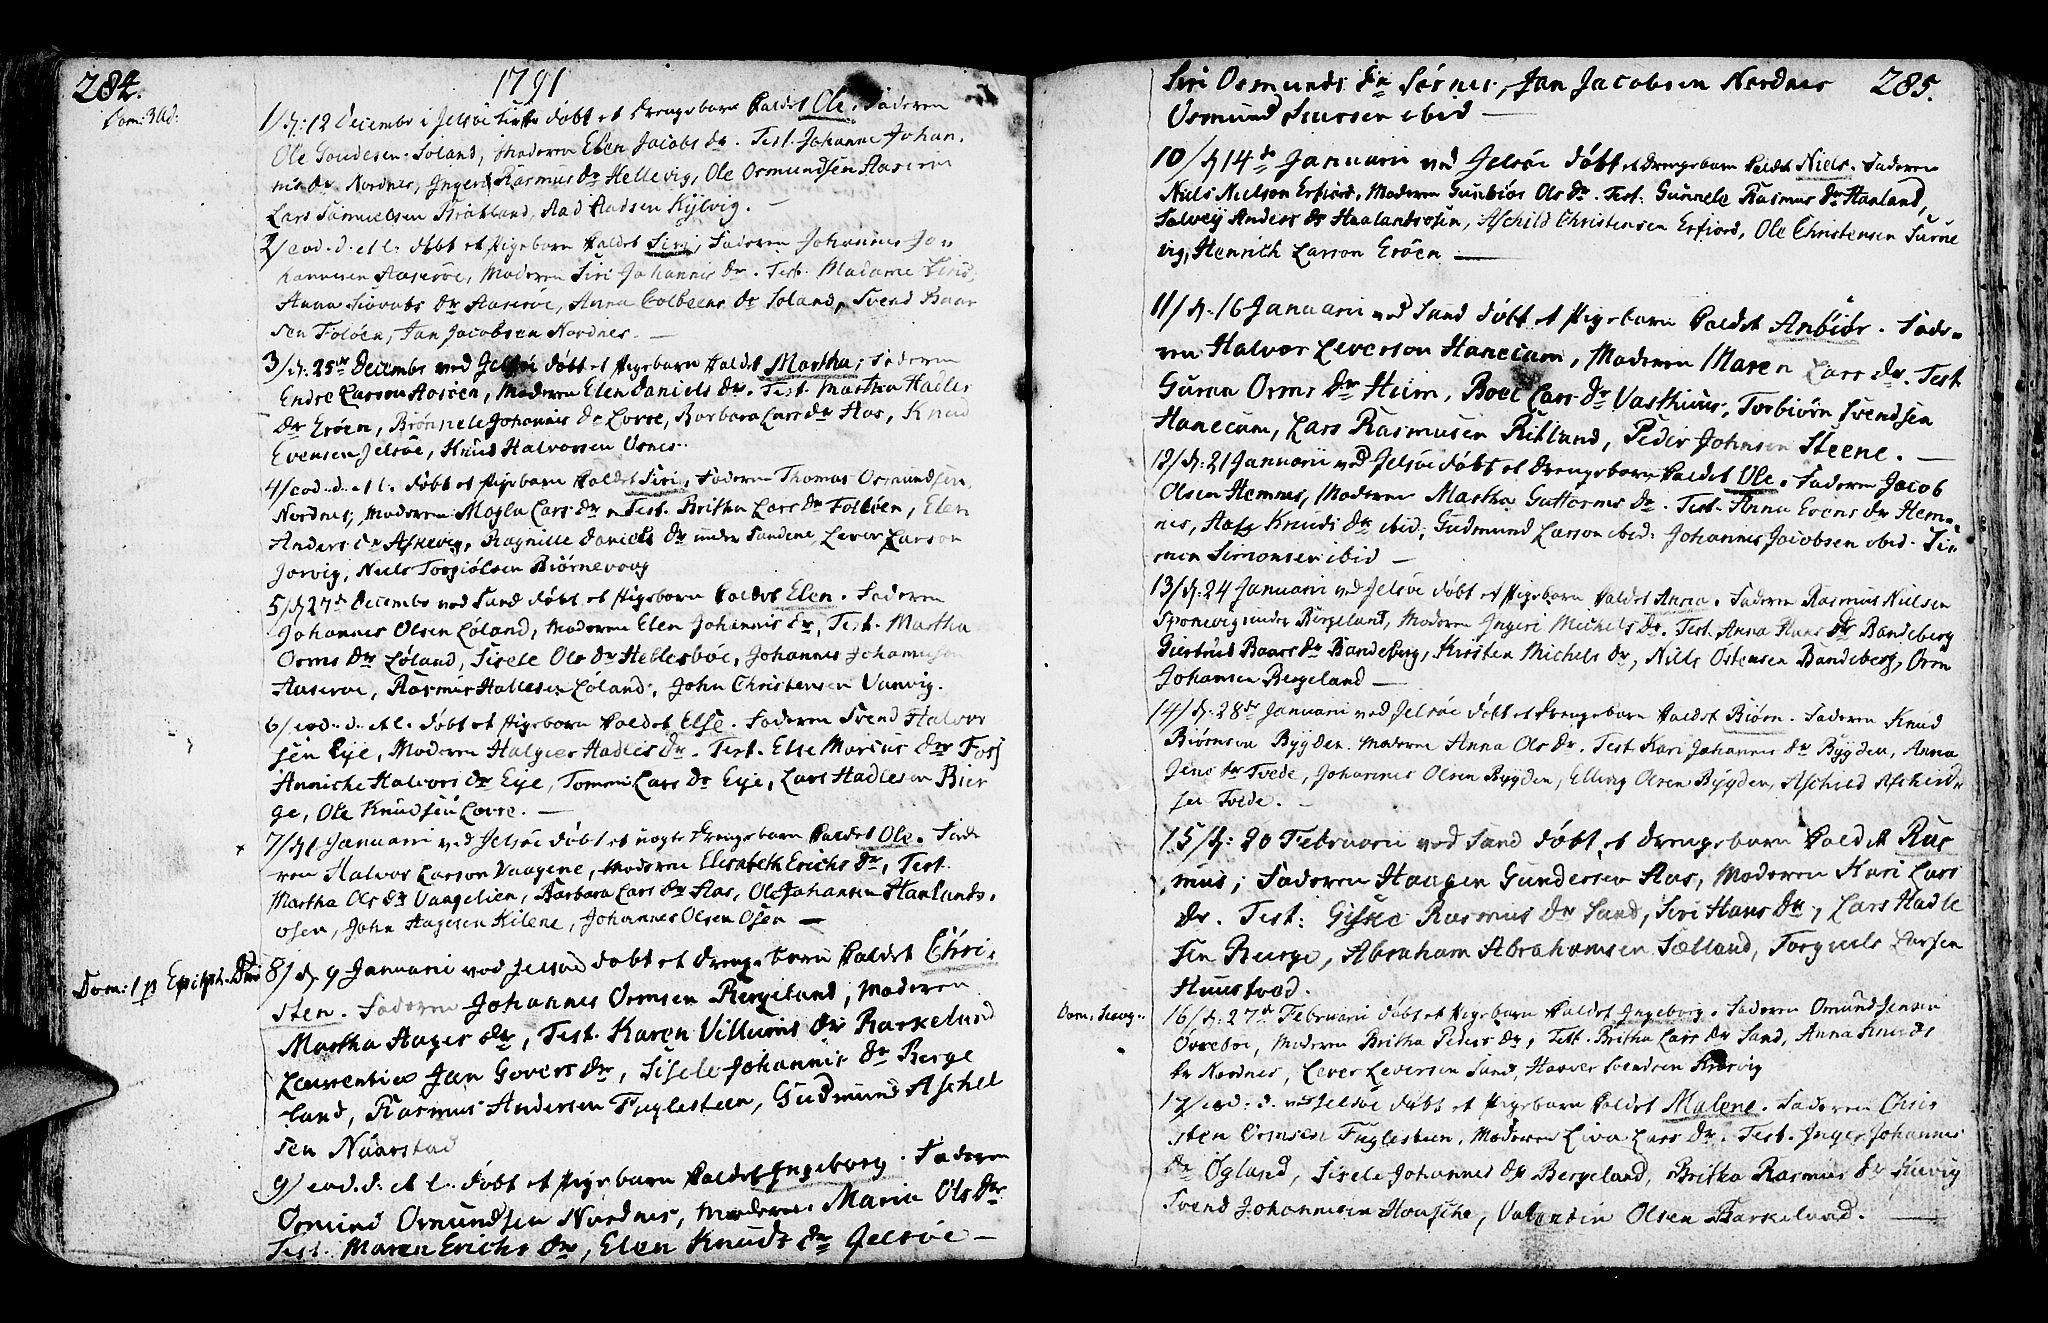 284.
1791
Dom: 3 Ad:
1/ d: 12 Decembr i Jelsøe Kirke døbt et Drengebarn kaldet Ole. Faderen
Ole Goutesen Soland, Moderen Elen Jacobs dr. Test. Johanne Johan,
nis dr Nordnes, Inger Rasmus dr Hellevig, Ole Osmundsen Aaserøe
Lars Samuelsen Bratland, Aad Aadsen Kylvig. —
2/ eod. d. et l. døbt et Pigebarn kaldet Siri, Faderen Johannes Jo=
hannesen Aaserøe, Moderen Siri Johannis dr. Test. Madame Lind,
Anna Siovats dr Aaserøe, Anna Colbeens dr Soland, Svend Baar
sen Foløen, Jan Jacobsen Nordnes. —
3/ d. 25de Decembr ved Jelsøe døbt et Pigebarn kaldet Martha, Faderen
Endre Larsen Aasven, Moderen Elen Daniels dr. Test. Martha Hadles
dr Erøen, Brønnele Johannis dr Lovre, Barbara Lars dr Aas, Knud
Evensen Jelsøe, Knud Halvorsen Vsnes.
4/ eod. d. et l. døbt et Pigebarn kaldet Siri, Faderen Thomas Osmundsen
Nordnes, Moderen Magla Lars dr. Test. Britha Lars dr Foløen, Elen
Anders dr Askevig, Ragnille Daniels dr under Sandene, Lever Larsen
Jorvig, Niels Torgiølsen Biørnevaag
5/ d 27de Decembr ved Sand døbt et Pigebarn kaldet Elen. Faderen
Johannes Olsen Løland, Moderen Elen Johannis dr, Test. Martha
Orms dr Løland, Sisele Ols dr Hellesbøe, Johannes Johannesen
Aaserøe, Rasmus Hallesen Løland, John Christensen Vanvig.
6/ eod. d. et l. døbt et Pigebarn kaldet Else. Faderen Svend Halvor
sen Eye, Moderen Halgier Hadles dr. Test. Else Marcus dr Fosj
Anniche Halvors dr Eye, Tommi Lars dr Eye, Lars Hadlesen Bier
ge, Ole Knudsen Lovre. —
7/ d 1 Januarii ved Jelsøe døbt et uægte Drengebarn kaldet Ole. Fade
ren Halvor Larsen Vaagene, Moderen Elisabeth Erichs dr, Test.
Martha Ols dr Vaagelien, Barbara Lars dr Aas, Ole Johansen Haalands,
osen, John Aagesen Kilene, Johannes Olsen Osen —
Dom: 1 p Epiph. Dni
8/ d. 9 Januarii ved Jelsøe døbt et Drengebarn kaldet Chri,
sten. Faderen Johannes Ormsen Bergeland, Moderen
Martha Aages dr, Test. Karen Villums dr Barkeland
Laurentia Jan Govers dr, Sisele Johannis dr Berge
land, Rasmus Andersen Fuglesteen, Gudmund Aschel
sen Naarstad
9/ eod. d. et l. døbt et Pigebarn kaldet Ingeborg. Faderen
Osmund Osmundsen Nordnes, Moderen Maria Ols dr
Test. Maren Erichs dr, Elen Knuds dr Jelsøe —
285.
Siri Osmunds dr Sørnes, Jan Jacobsen Nordnes
Osmund ibid —
10/ d 14de Januarii ved Jelsøe døbt et Drengebarn kaldet Niels. Faderen
Niels Nielsen Erfiord, Moderen Gunbiør Ols dr. Test. Gunnele Rasmus dr Haaland,
Salvej Anders dr Haalandsosen, Aschild Christensen Erfiord, Ole Christensen Turne
vig, Henrich Larsen Erøen —
11/ d. 16 Januarii ved Sand døbt et Pigebarn kaldet Anbiør. Fade=
ren Halvor Leversen Hanecam, Moderen Maren Lars dr. Test
Guran Orms dr Heim, Boel Lars dr Vasthuus, Torbiørn Svendsen
Hanecam, Lars Rasmusen Ritland, Peder Johnsen Steene. —
12/ d. 21 Januarii ved Jelsøe døbt et Drengebarn kaldet Ole. Faderen Jacob
Olsen Hemnes, Moderen Martha Guttorms dr. Test. Anna Evens dr Hem=
nes, Knuds dr ibid, Gudmund Larsen ibid. Johannes Jacobsen ibid. Si=
men Simonsen ibid —
13/ d. 24 Januarii ved Jelsøe døbt et Pigebarn kaldet Anna. Faderen Rasmus Nielsen
Sponevig under Bergeland, Moderen Ingeri Michels dr. Test. Anna Hans dr Bandeberg
Giertrud Baars dr Bandeberg, Kirsten Michels dr, Niels Ostensen Bandeberg, Orm
Johansen Bergeland —
14/ d. 28de Januarii ved Jelsøe døbt et Drengebarn kaldet Biørn. Faderen Knud
Biørnsen Bygden. Moderen Anna Ols dr. Test. Kari Johannes dr Bygden, Anna
Jens dr Tvede, Johannes Olsen Bygden, Elling Olsen Bygden, Aschild Aschild=
sen Tvede. —
15/ d: 20 Februarii ved Sand døbt et Drengebarn kaldet Ras
mus, Faderen Haagen Gundersen Aas, Moderen Kari Lars
dr. Test: Giske Rasmus dr Sand, Siri Hans dr, Lars Hadle
sen Berge, Abraham Abrahamsen Sælland, Torguels Larsen
Huustvед.
Dom. Sexag.
16/ d. 27de Februarii døbt et Pigebarn kaldet Ingeborg. Faderen Osmund Jensen
Øvrebøe, Moderen Britha Peders dr, Test. Britha Lars dr Sand, Anna Knuds
dr Nordnes, Lever Leversen Sand, Haaver Svendsen
17/ eod. d. ved Jelsøe døbt et Pigebarn kaldet Malene. Faderen Chris
sten Ormsen Fuglesteen, Moderen Liva Lars dr. Test. Inger Johannes
dr Øgland, Sisele Johannes dr Bergeland, Britha Rasmus dr
Svend Johannesen Housche, Valentin Olsen Barkeland. —